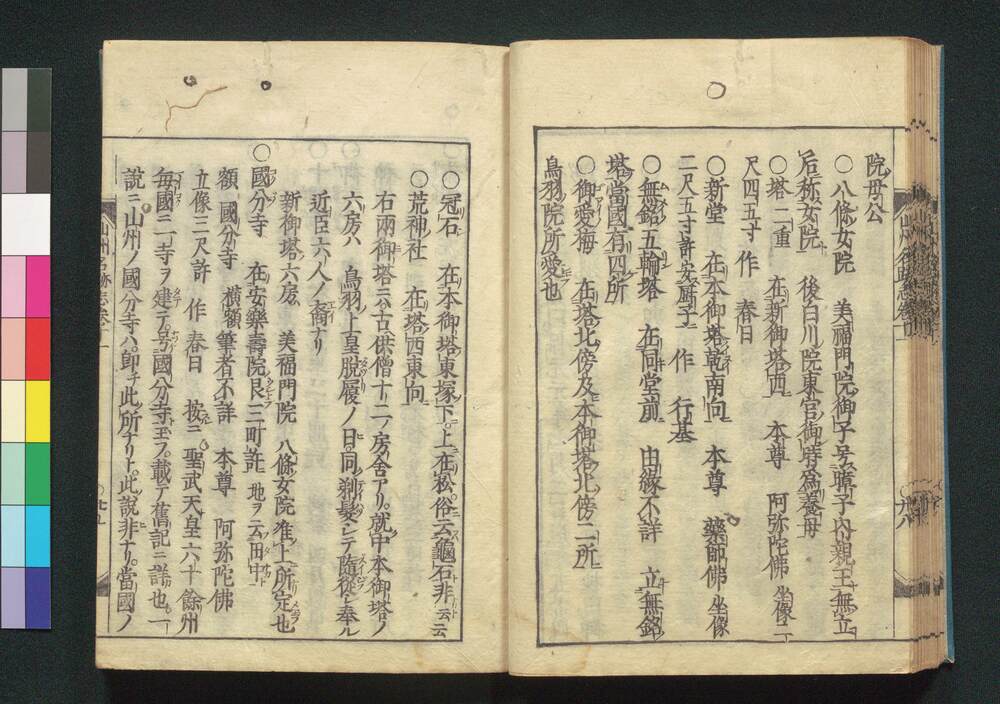 院母公
〇八條女院 美福門院御子号暲子内親王無立
后称女院 後白川院東宮御時爲養母
〇塔二重 在新御塔西 本尊 阿弥陀佛 坐像二
尺四五寸 作 春日
〇新堂 在本御塔乾南向 本尊 藥師佛 坐像
二尺五寸許安厨子 作 行基
〇無銘五輪塔 在同堂前 由縁不詳 立無銘
塔當國有四所
〇御愛梅 在塔北傍及本御塔北傍二所
鳥羽院所愛也
〇冠石 在本御塔東塚下。上在松俗云龜石非云云
〇荒神社 在塔西東向
右兩御塔ニハ古供僧十二ノ房舍アリ。就中本御塔ノ
六房ハ 鳥羽上皇脱履ノ日。同剃髪シテ隨從シ奉ル
近臣六人ノ裔ナリ
新御塔六房 美福門院 八條女院准上所定也
〇國分寺 在安樂壽院艮三町許 地ヲ云田中
額 國分寺 横額筆者不詳 本尊 阿弥陀佛
立像三尺許 作 春日 按ニ 聖武天皇六十餘州
毎國ニ一寺ヲ建テ号國分寺玉フ。載テ舊記ニ詳也。一
説ニ山州ノ國分寺ハ。即チ此所ナリト。此説非ナリ。當國ノ